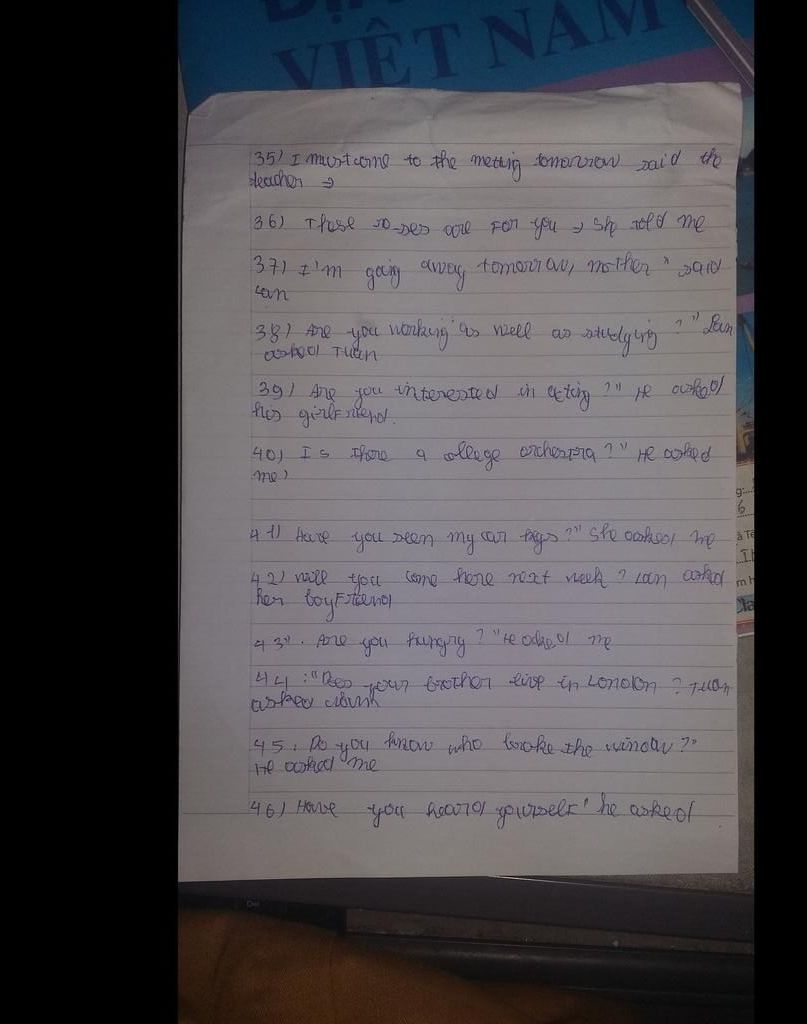 VIỆT NAM
35) I must come to the metting tomorrow said the
teacher ⇒
36) These roses are For you → she told me
37) I'm going away tomorrow, mother" said
Lan
38) Are you working as well as studying ?" Lan
asked Tuan
39) Are you interested in acting ?" He asked
his girlFriend.
40) Is there a college orchestra ?" He asked
me)
41) Have you seen my car keys?" She asked me
42) will you come here next week ? Lan asked
her boyFriend
43". Are you hungry ? "He asked me
44 : "Does your brother live in London ? Tuan
asked
45. Do you know who broke the window ?"
He asked me
46) Have you heard yourself" he asked
Del